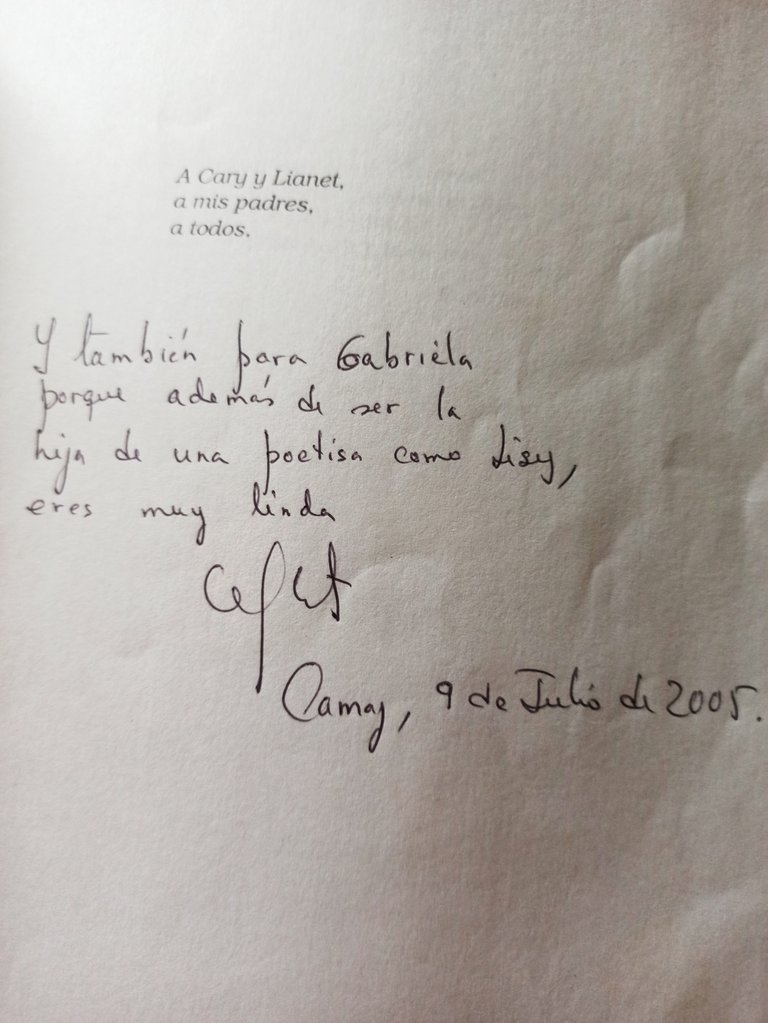 A Cary y Lianet,
a mis padres,
a todos.
Y también para Gabriela
porque además de ser la
hija de una poetisa como Lisy,
eres muy linda
Camag, 9 de Julio de 2005.